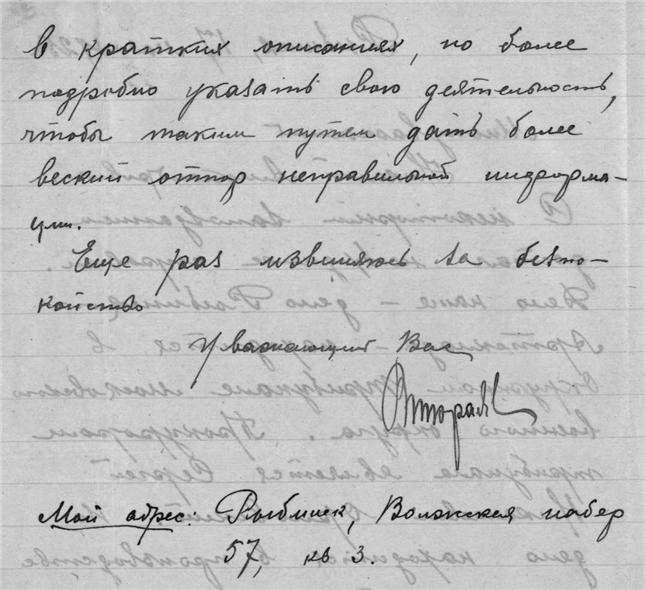 в кратких описаниях, но более
подробно указать свою деятельность,
чтобы таким путем дать более
веский отпор неправильной информа-
ции.
Еще раз извиняюсь за беспо-
койство
Уважающий Вас
Мой адрес: Рыбинск, Волжская набер
57, кв 3.